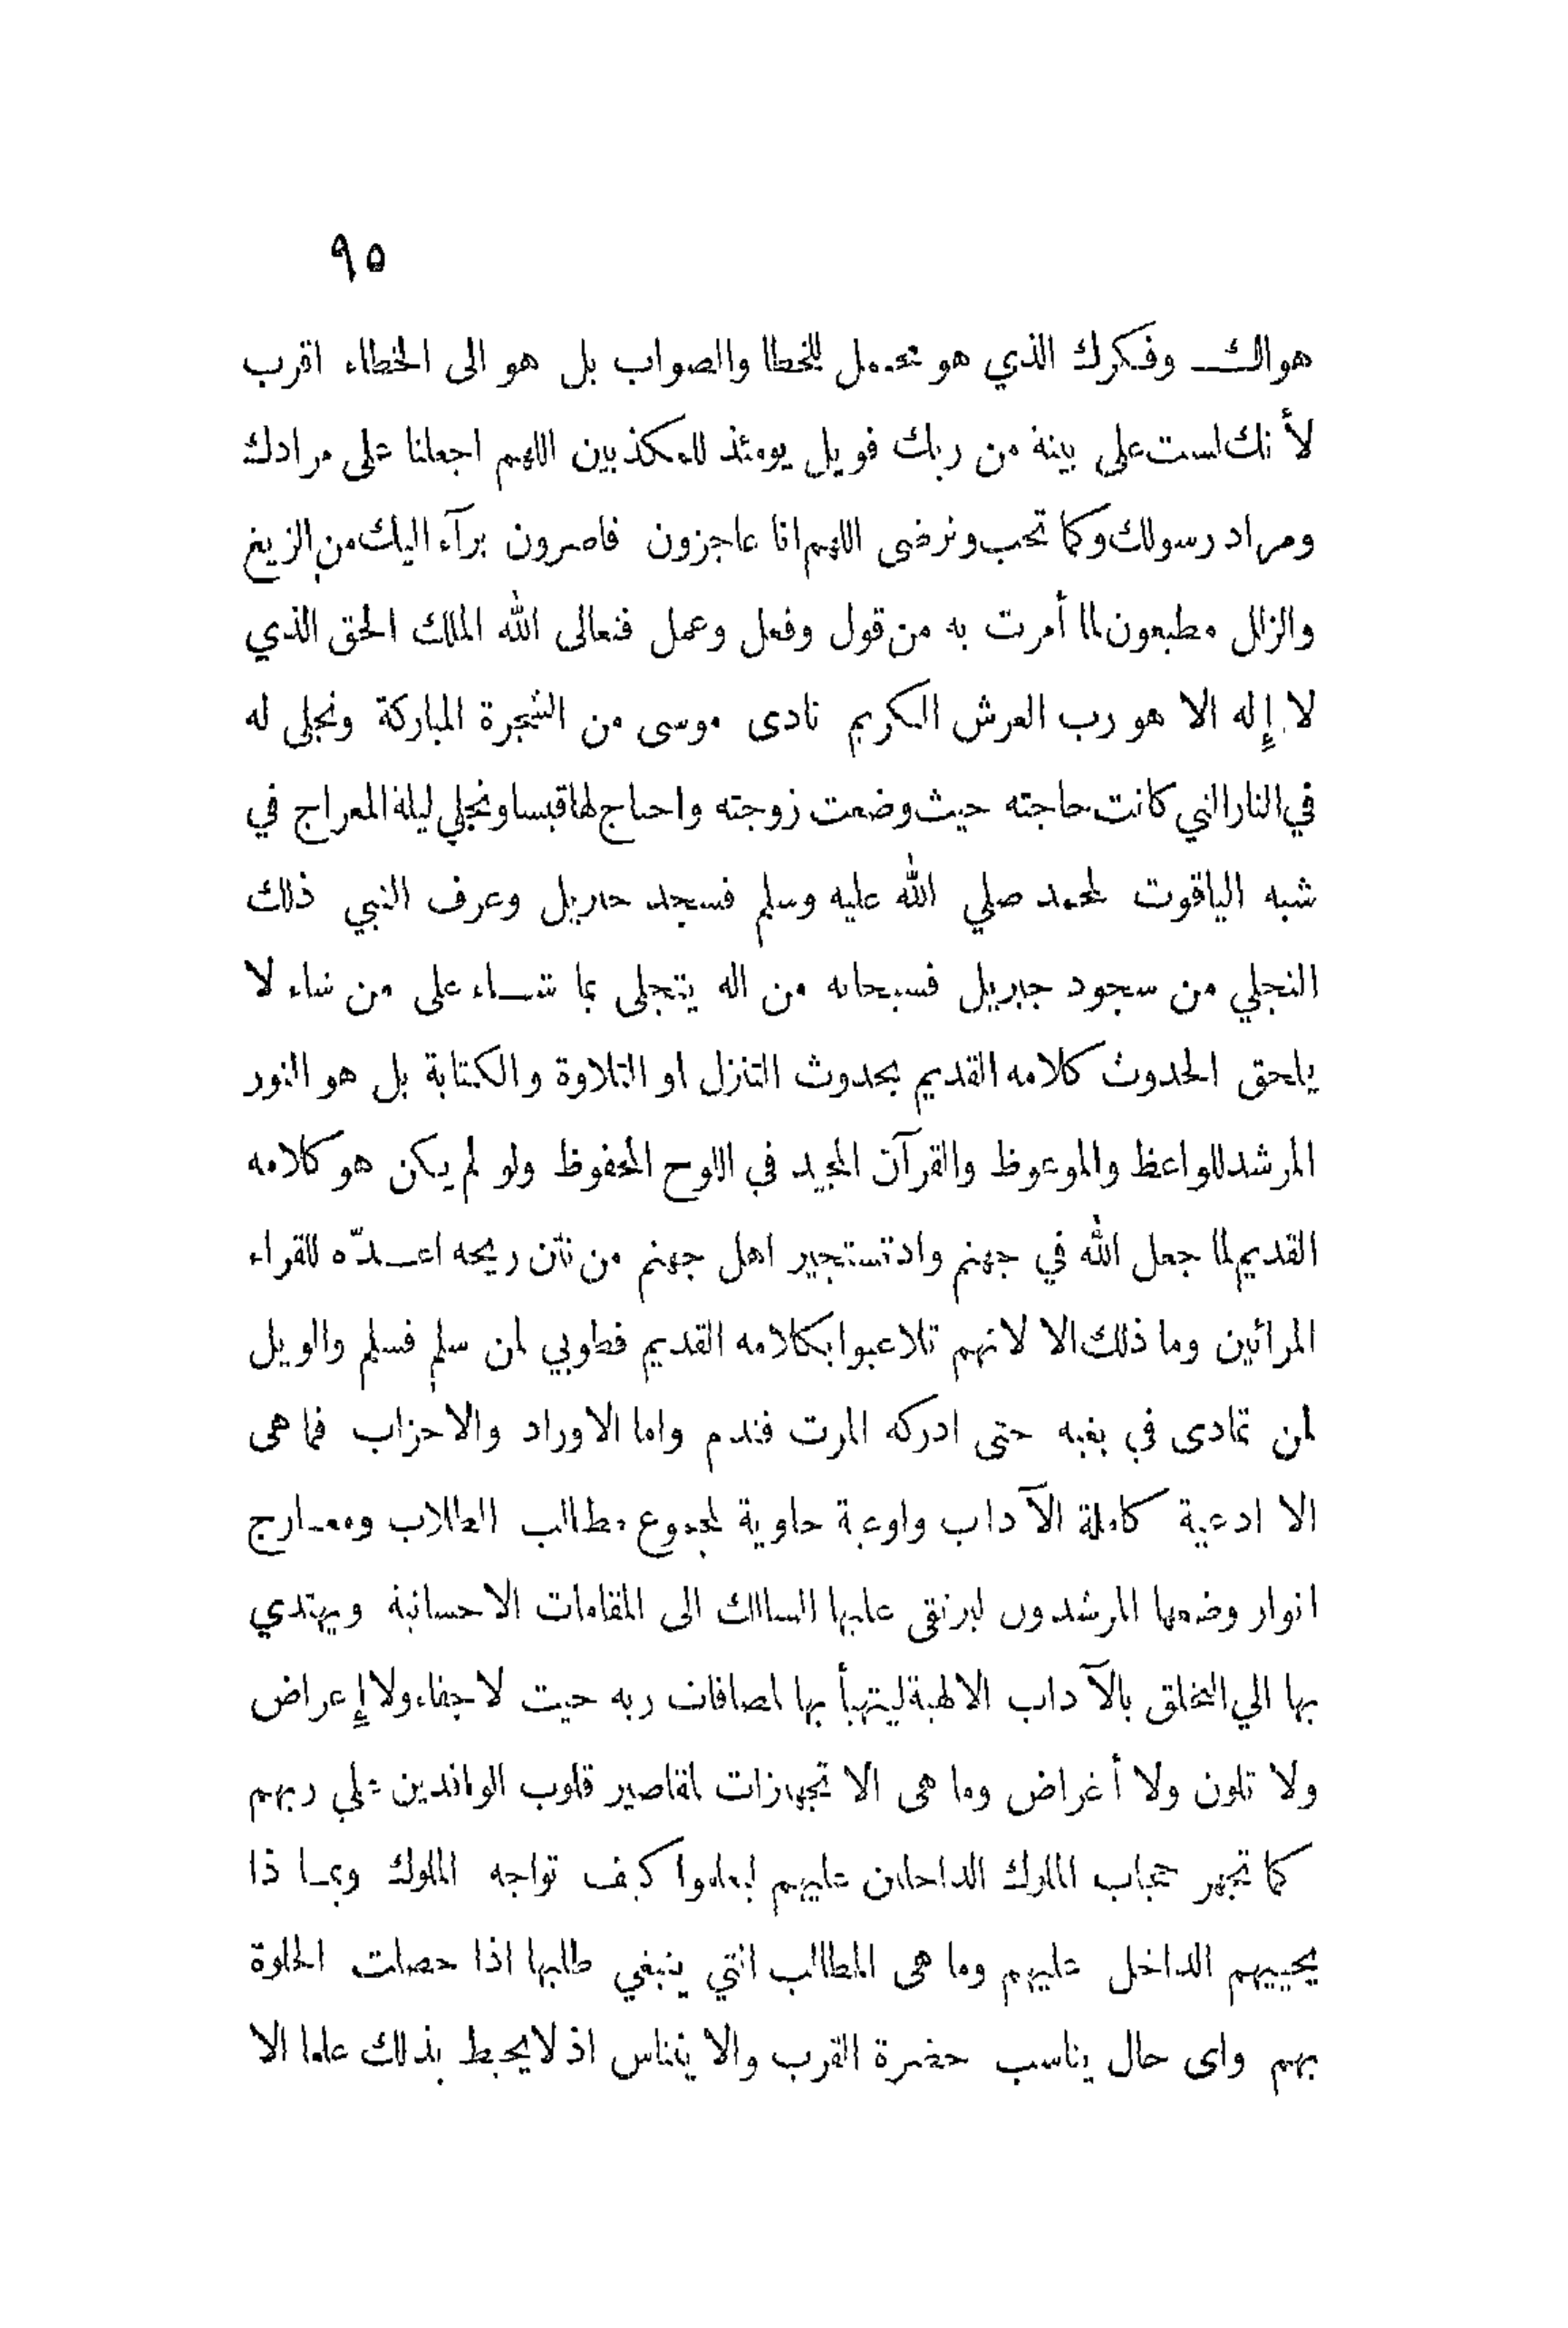 ٩٥
هواك وفكرك الذي هو محتمل للخطا والصواب بل هو الى الخطاء اقرب
لأنك لست على بينة من ربك فويل يومئذ للمكذبين اللهم اجعلنا على مرادك
ومراد رسولك وكما تحب وترضى اللهم انا عاجزون قاصرون برآء اليك من الزيغ
والزلل مطيعون لما أمرت به من قول وفعل وعمل فتعالى الله الملك الحق الذي
لا إله الا هو رب العرش الكريم نادى موسى من الشجرة المباركة وتجلى له
في النار التي كانت حاجته حيث وضعت زوجته واحتاج لها قبسا وتجلي ليلة المعراج في
شبه الياقوت لمحمد صلي الله عليه وسلم فسجد جبريل وعرف النبي ذلك
التجلي من سجود جبريل فسبحانه من اله يتجلى بما شاء على من شاء لا
يلحق الحدوث كلامه القديم بحدوث التنزل او التلاوة والكتابة بل هو النور
المرشد للواعظ والموعوظ والقرآن المجيد في اللوح المحفوظ ولو لم يكن هو كلامه
القديم لما جعل الله في جهنم واد تستجير اهل جهنم من نتن ريحه اعدّه للقراء
المرائين وما ذلك الا لانهم تلاعبوا بكلامه القديم فطوبي لمن سلم فسلم والويل
لمن تمادى في بغيه حتى ادركه الموت فندم واما الاوراد والاحزاب فما هى
الا ادعية كاملة الآداب واوعية حاوية لمجموع مطالب الطلاب ومعارج
انوار وضعها المرشدون ليرتقى عليها السالك الى المقامات الاحسانية ويهتدي
بها الي التخلق بالآداب الالهية ليتهيأ بها لمصافات ربه حيت لا جفاء ولا إعراض
ولا تلون ولا أغراض وما هى الا تجهازات لمقاصير قلوب الوافدين علي ربهم
كما تجهر حجاب الملوك الداخلين عليهم ليعلموا كيف تواجه الملوك وبما ذا
يحييهم الداخل عليهم وما هى المطالب التي ينبغي طلبها اذا حصلت الخلوة
بهم واى حال يناسب حضرة القرب والايناس اذ لا يحيط بذلك علما الا